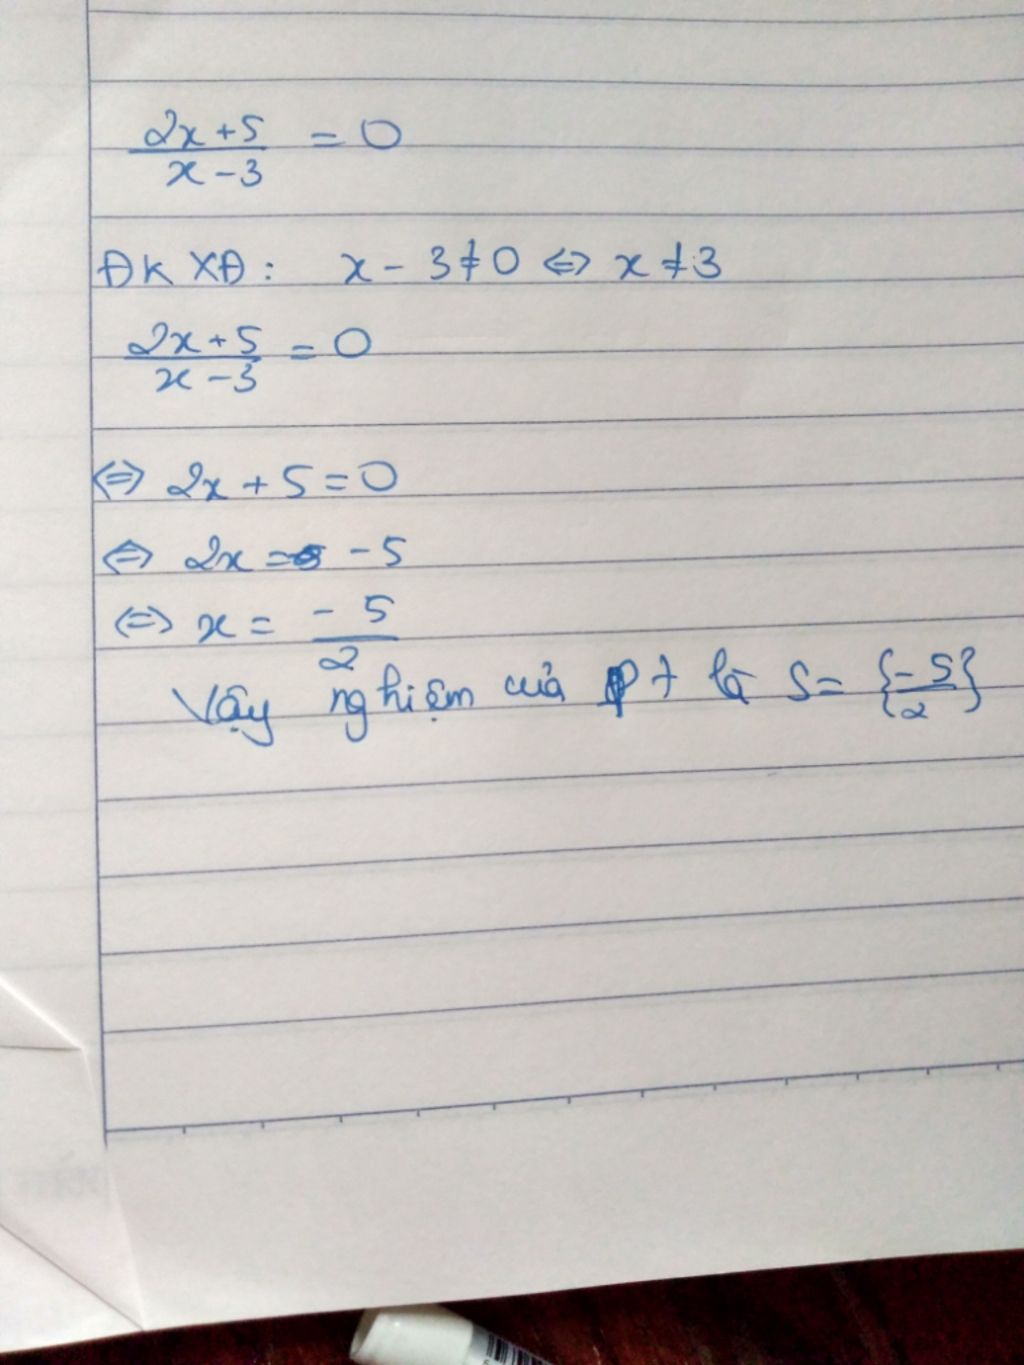 2x+5 / x-3 = 0
ĐKXĐ: x - 3 ≠ 0 <=> x ≠ 3
2x+5 / x-3 = 0
<=> 2x + 5 = 0
<=> 2x = -5
<=> x = -5 / 2
Vậy nghiệm của pt là S = {-5/2}